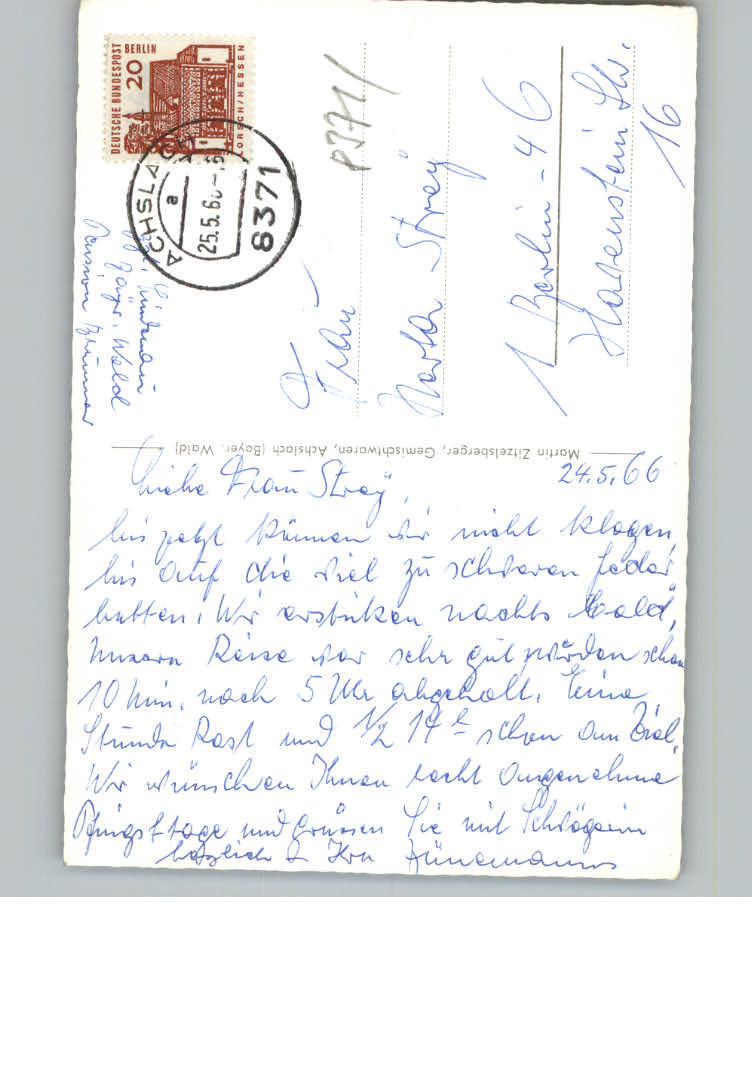 DEUTSCHE BUNDESPOST
BERLIN
20
LORSCH/HESSEN
ACHSLACH
a
25.5.66
8371
8371
Bayr. Wald
Pension Brunner
Frau
Herta Strey
1 Berlin-46
Havensteinstr.
16
Martin Zitzelsberger, Gemischtwaren, Achslach (Bayer. Wald)
24.5.66
Liebe Frau Strey,
bis jetzt können wir nicht klagen,
bis auf die viel zu schweren Feder
betten. Wir ersticken nachts bald,
Unsere Reise war sehr gut würden schon
10 Min. nach 5 Uhr abgeholt. Eine
Stunde Rast und 1/2 14 h schon am Ziel.
Wir wünschen Ihnen recht angenehme
Pfingsttage und grüssen Sie mit Schwägerin
herzlich Ihre Zünemanns